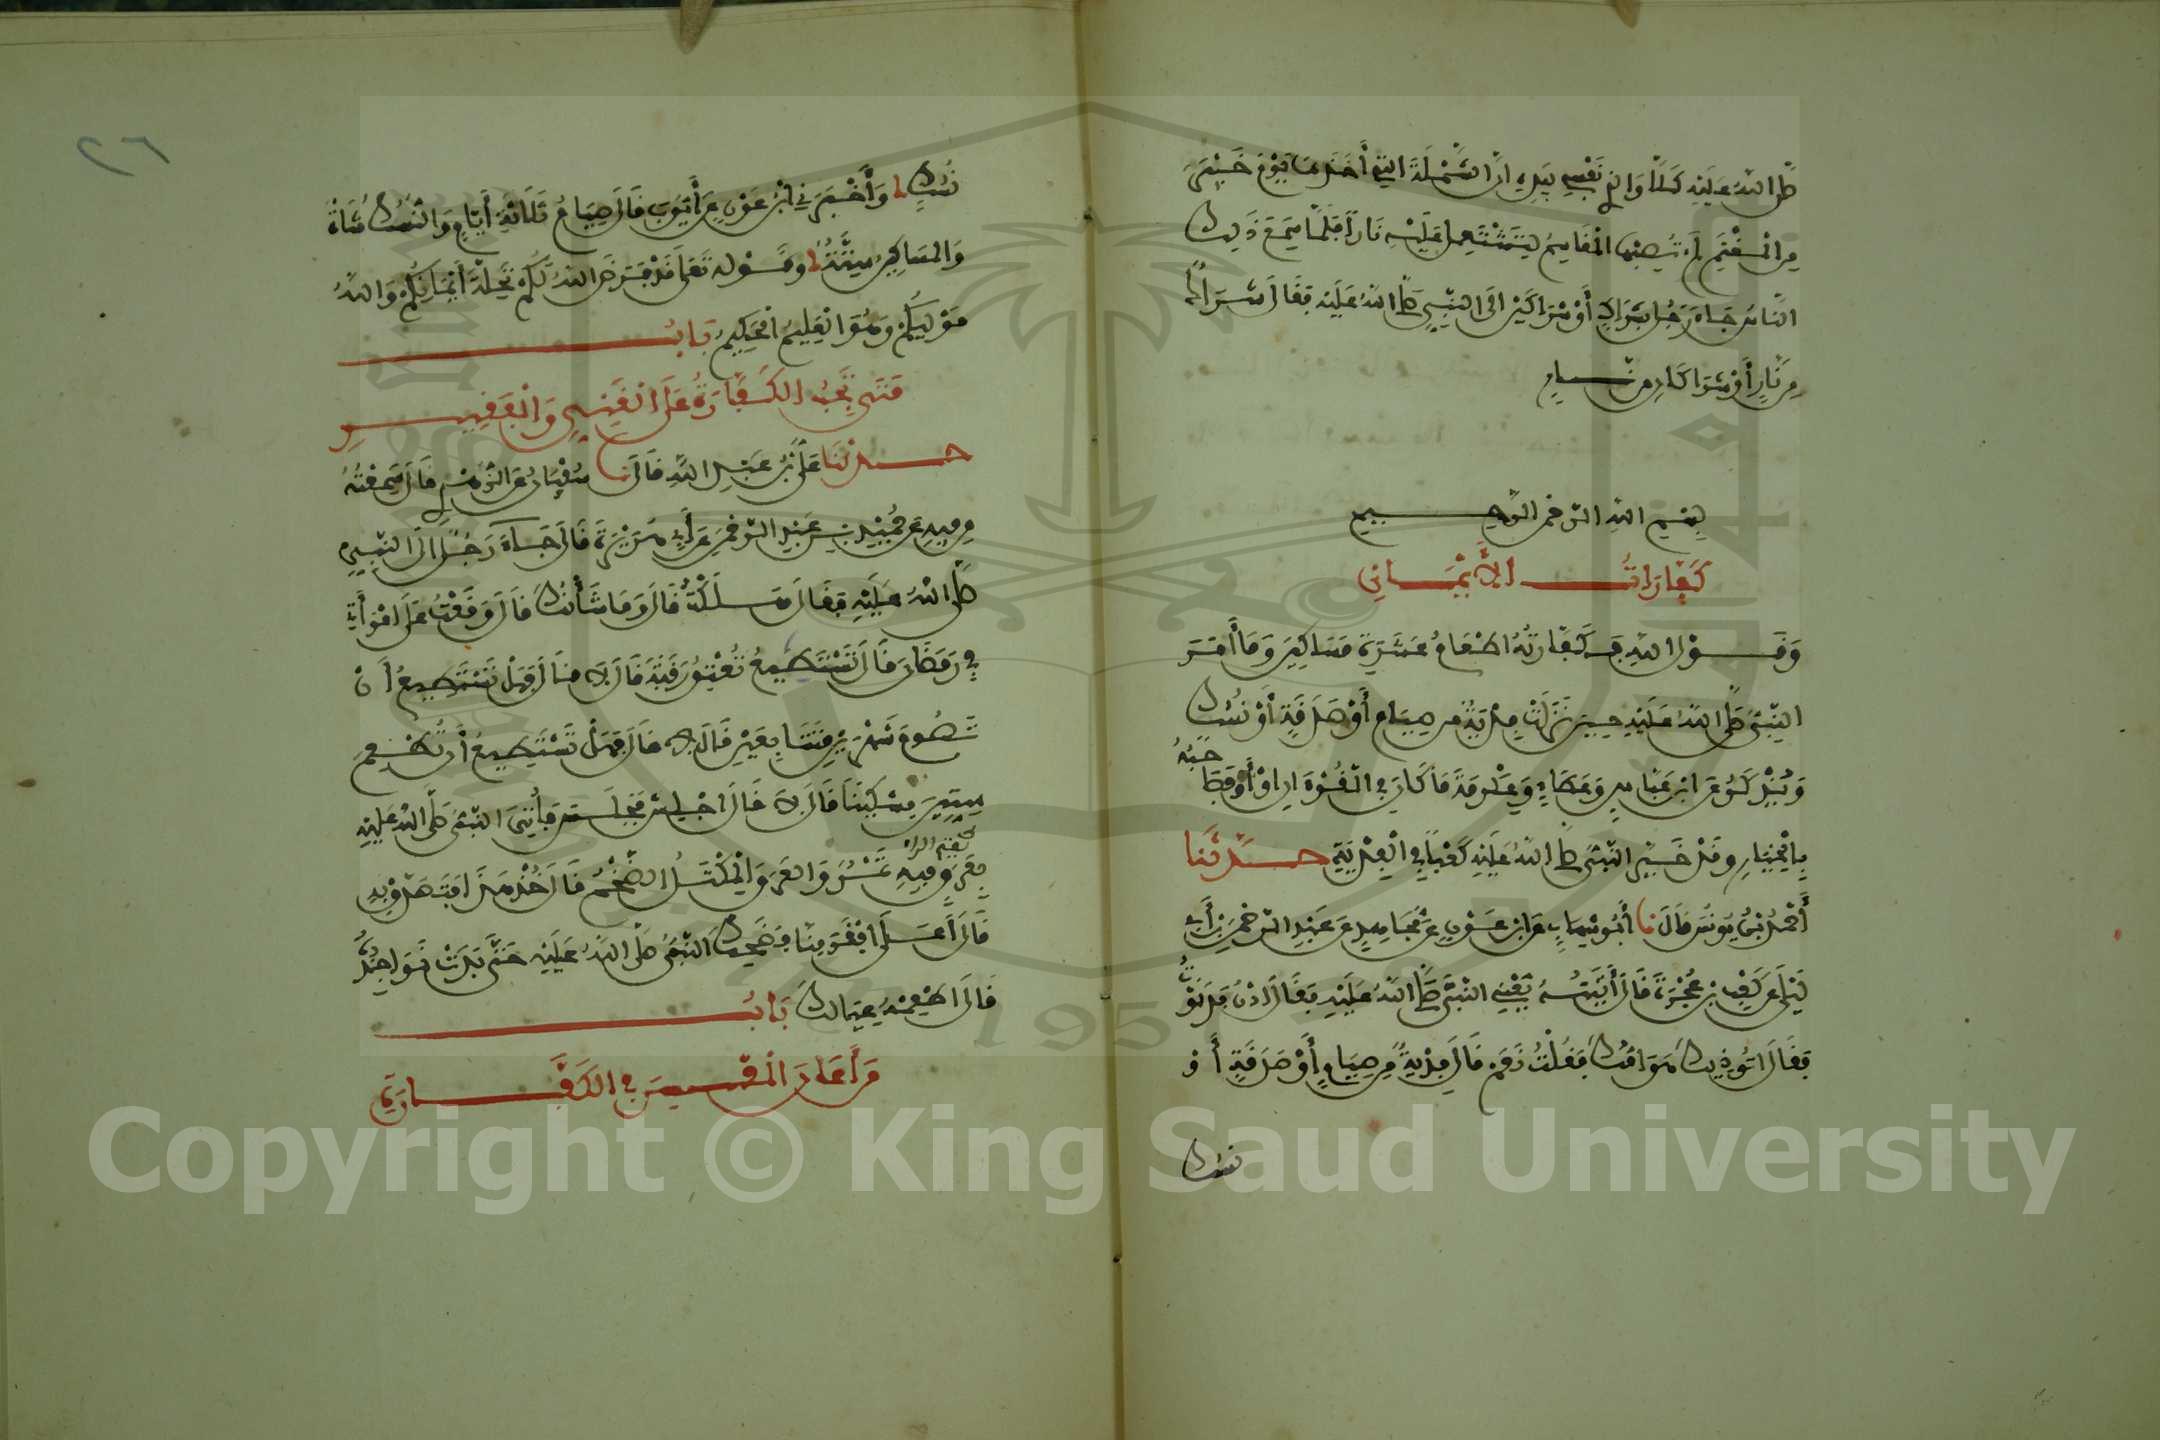 صلى الله عليه كلا والذي نفسي بيده ان الشملة التي أخذها يوم خيبر
من المغنم لم تصبها المقاسم لتشتعل عليه نارا فلما سمع ذلك
الناس جاء رجل بشراك أو شراكين الى النبي صلى الله عليه فقال شراك
من نار أو شراكان من نار
بسم الله الرحمن الرحيم
كفارات الأيمان
وقول الله فكفارته اطعام عشرة مساكين وما أمر
النبي صلى الله عليه حين نزلت فدية من صيام أو صدقة أو نسك
ويذكر عن ابن عباس وعطاء وعكرمة ما كان في القرءان او أو فصاحبه
بالخيار وقد خير النبي صلى الله عليه كعبا في الفدية حدثنا
أحمد بن يونس قال نا أبو شهاب عن ابن عون عن مجاهد عن عبد الرحمن بن أبي
ليلى عن كعب بن عجرة قال أتيته يعني النبي صلى الله عليه فقال ادن فدنوت
فقال ايوذيك هوامك فقلت نعم قال فدية من صيام أو صدقة أو
نسك
٢٦
نسك وأخبرني ابن عون عن أيوب قال صيام ثلاثة أيام والنسك شاة
والمساكين ستة وقوله تعلى قد فرض الله لكم تحلة أيمانكم والله
موليكم وهو العليم الحكيم باب
متى تجب الكفارة على الغني والفقير
حدثنا علي بن عبد الله قال نا سفيان عن الزهري قال سمعته
من فيه عن حميد بن عبد الرحمن عن أبي هريرة قال جاء رجل الى النبي
صلى الله عليه فقال هلكت قال وما شأنك قال وقعت على امرأتي
في رمضان قال تستطيع تعتق رقبة قال لا قال فهل تستطيع أن
تصوم شهرين متتابعين قال لا قال فهل تستطيع أن تطعم
ستين مسكينا قال لا قال اجلس فجلس فأتي النبي صلى الله عليه
بفتح الراء
بعرق فيه تمر والعرق المكتل الضخم قال خذ هذا فتصدق به
قال أعلى افقر منا فضحك النبي صلى الله عليه حتى بدت نواجذه
قال اطعمه عيالك باب
من أعان المعسر في الكفارة
Copyright © King Saud University
1957